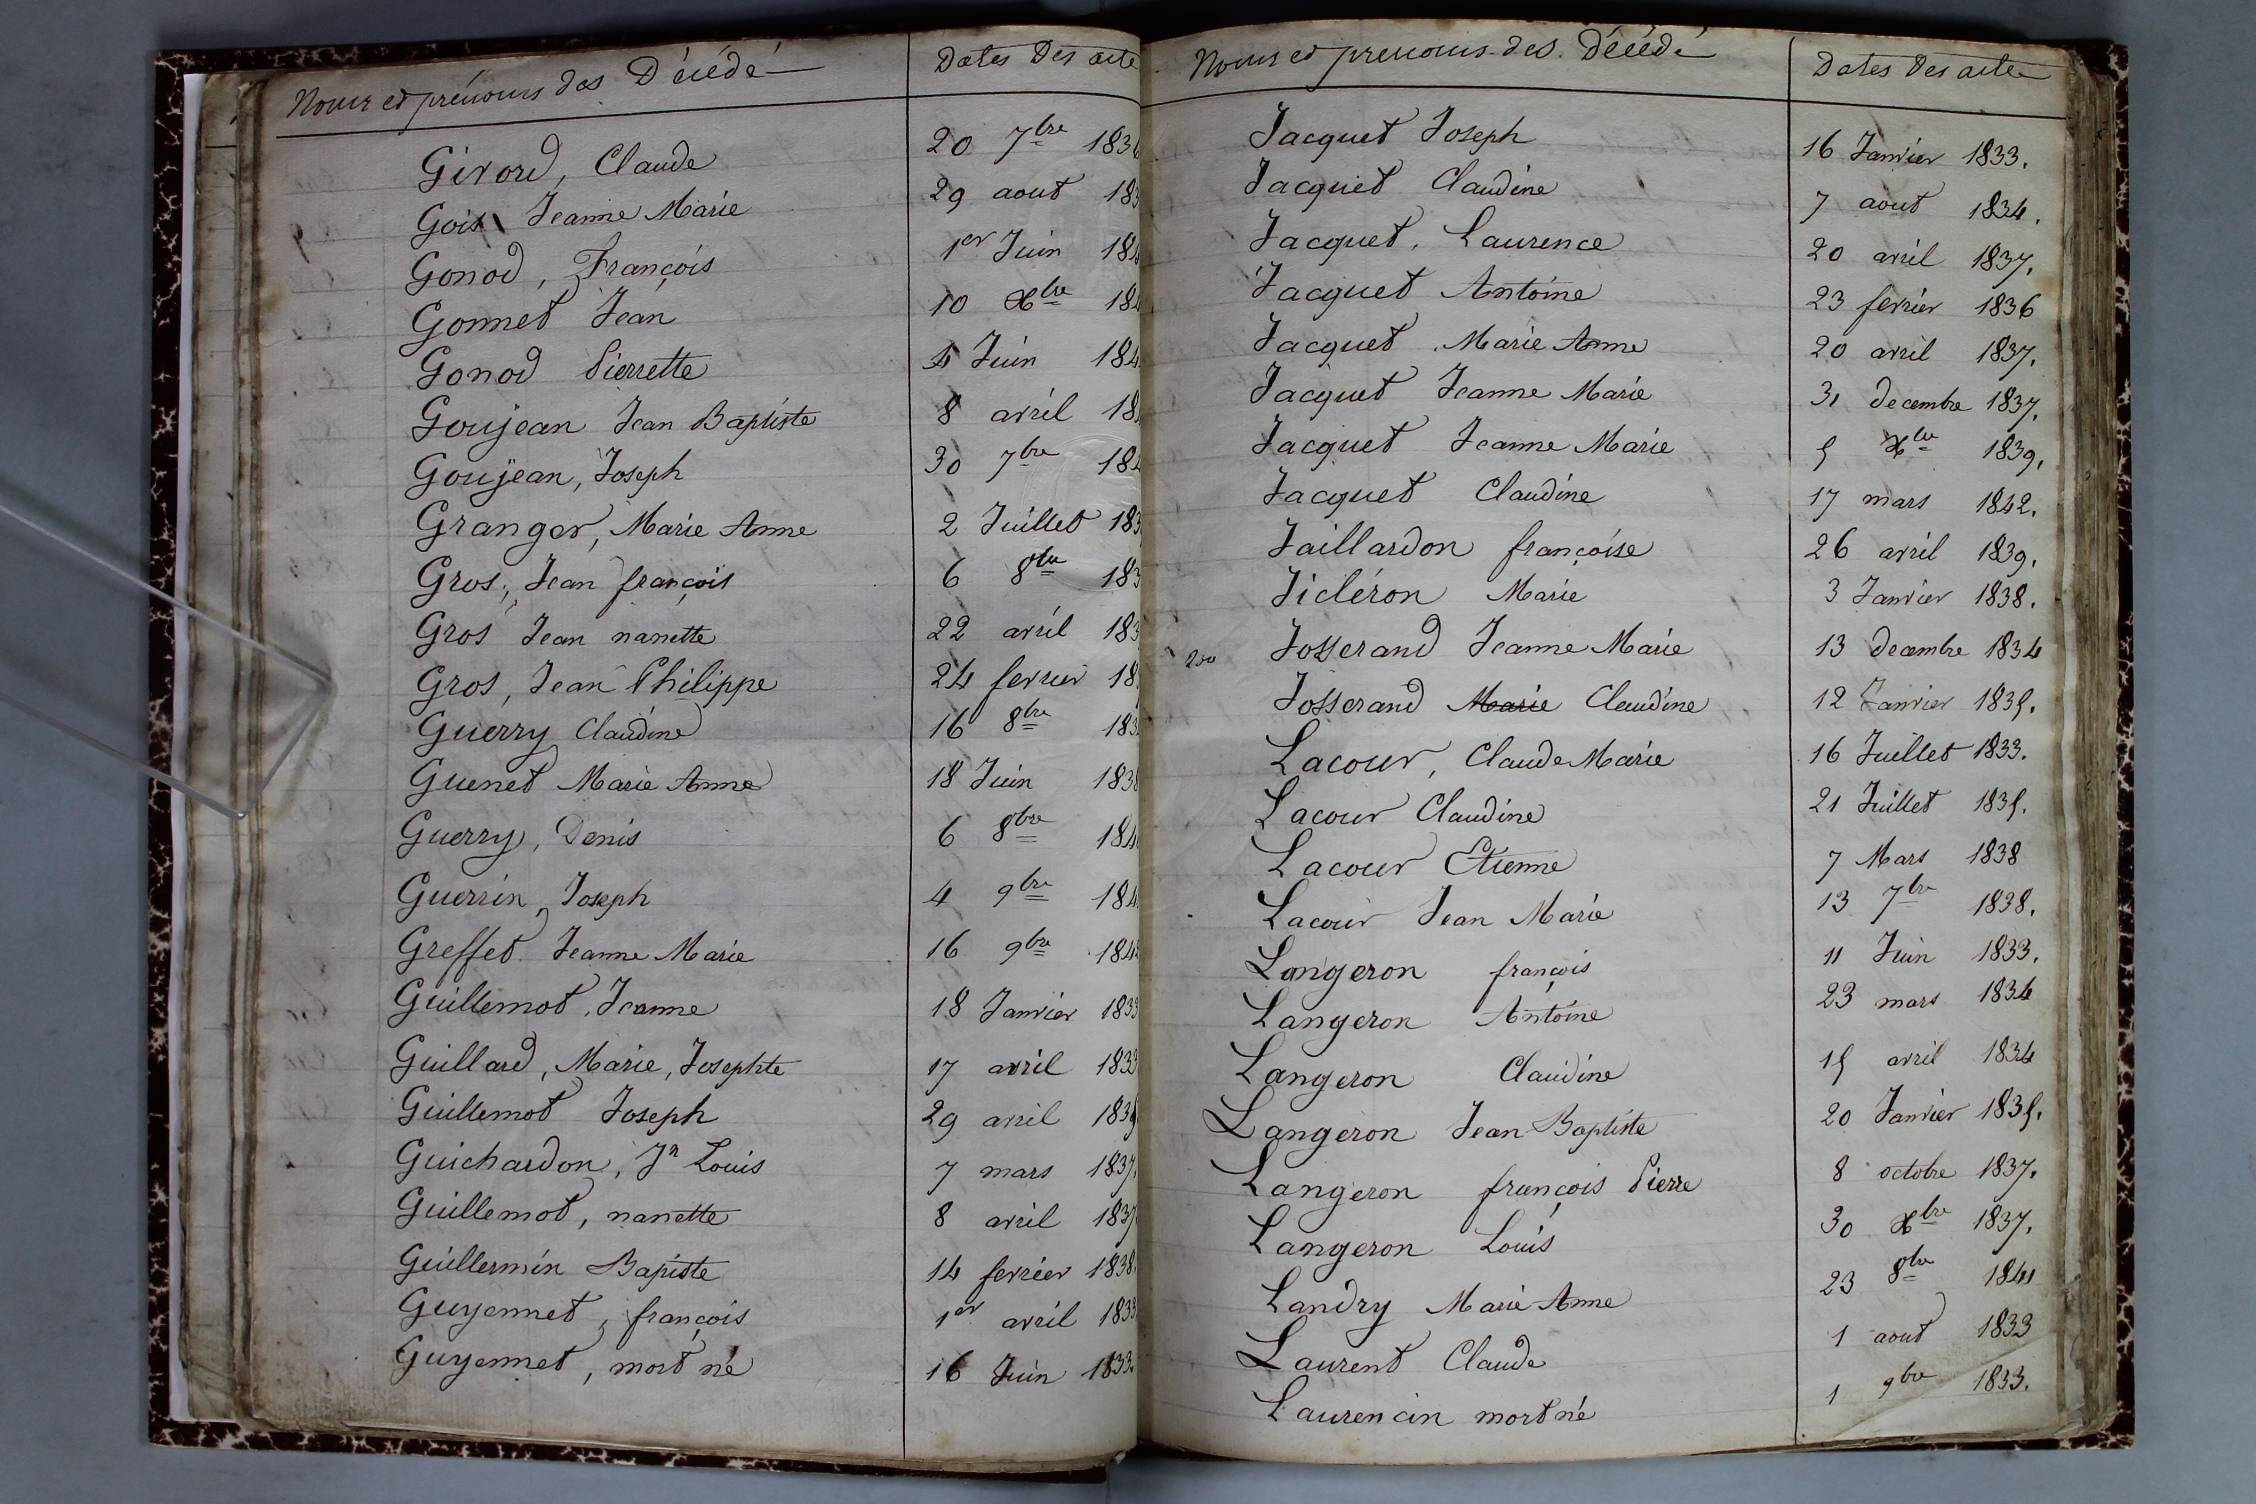 Noms et prénoms des Décédé Dates Des acte
Girod, Claude 20 7bre 1836
Gois Jeanne Marie 29 aout 183
Gonod, François 1er Juin 184
Gonnet Jean 10 Xbre 184
Gonod Pierrette 4 Juin 184
Goujean Jean Baptiste 8 avril 18
Goujean, Joseph 30 7bre 184
Granger, Marie Anne 2 Juillet 183
Gros, Jean françois 6 8bre 183
Gros Jean nanette 22 avril 183
Gros, Jean Philippe 24 fevrier 18
Guerry Claudine 16 8bre 183
Guenet Marie Anne 18 Juin 1838
Guerry, Denis 6 8bre 184
Guerrin, Joseph 4 9bre 184
Greffet Jeanne Marie 16 9bre 184
Guillemot, Jeanne 18 Janvier 1833
Guillard, Marie, Josephte 17 avril 1833
Guillemot Joseph 29 avril 1835
Guichardon, Jn Louis 7 mars 1837.
Guillemot, nanette 8 avril 1837
Guillermin Bapiste 14 fevrier 1838.
Guyennet, françois 1er avril 1833
Guyennet, mort né 16 Juin 1833.
Noms et prenoms des Décédé Dates Des acte
Jacquet Joseph 16 Janvier 1833.
Jacquet Claudine 7 aout 1834.
Jacquet, Laurence 20 avril 1837.
Jacquet Antoine 23 fevrier 1836
Jacquet Marie Anne 20 avril 1837.
Jacquet Jeanne Marie 31 decembre 1837.
Jacquet Jeanne Marie 5 Xbre 1839.
Jacquet Claudine 17 mars 1842.
Jaillardon françoise 26 avril 1839.
Jicléron Marie 3 Janvier 1838.
200 Josserand Jeanne Marie 13 decembre 1834
Josserand Marie Claudine 12 Janvier 1835.
Lacour, Claude Marie 16 Juillet 1833.
Lacour Claudine 21 Juillet 1835.
Lacour Etienne 7 Mars 1838
Lacour Jean Marie 13 7bre 1838.
Langeron françois 11 Juin 1833.
Langeron Antoine 23 mars 1834
Langeron Claudine 15 avril 1834
Langeron Jean Baptiste 20 Janvier 1835.
Langeron françois Pierre 8 octobre 1837.
Langeron Louis 30 Xbre 1837.
Landry Marie Anne 23 8bre 1841
Laurent Claude 1 aout 1833
Laurencin mort né 1 9bre 1833.